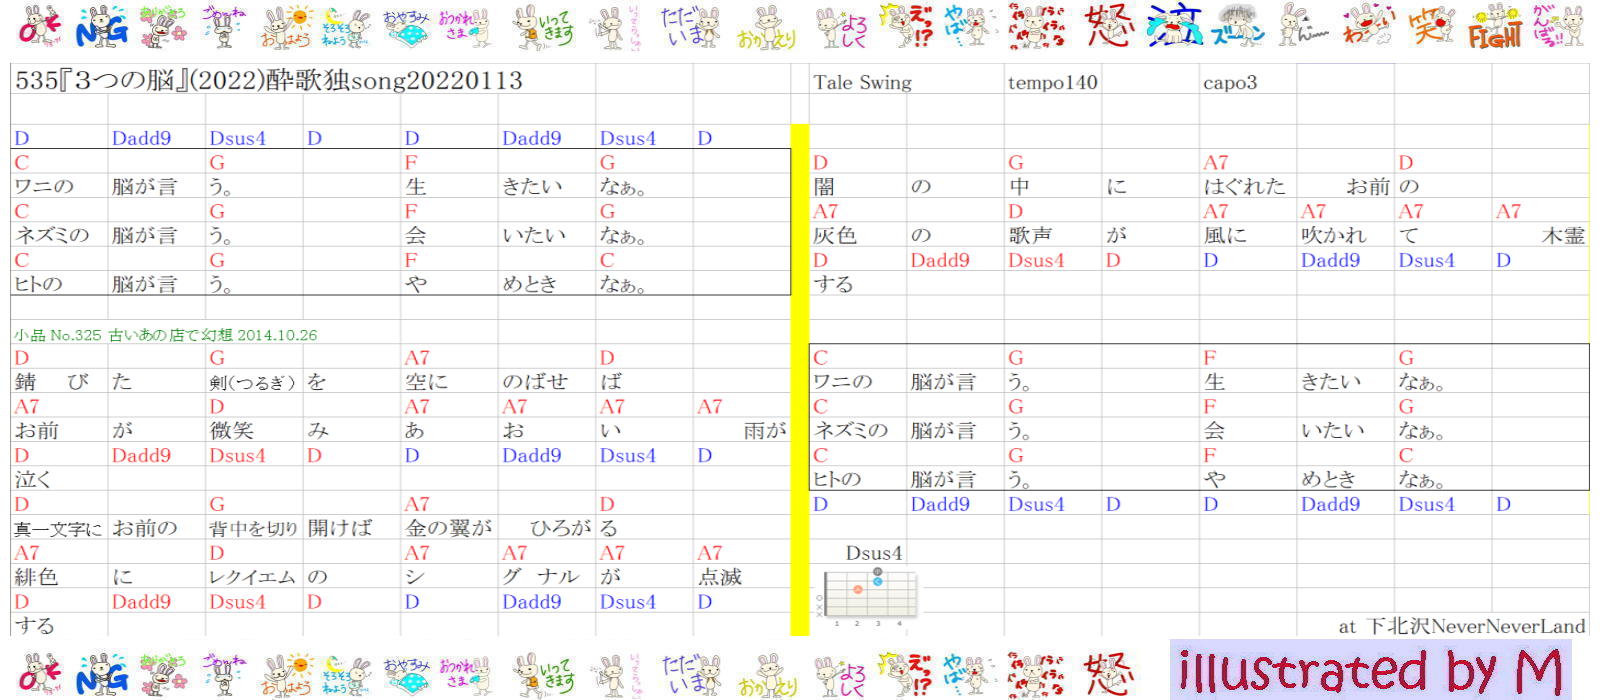 OK NG ありがとう ごめんね おはよう そろそろねよう おやすみ おつかれさま いってきます いってらっしゃい ただいま おかえり よろしく えっ!? やば… イライライライラ 怒 泣 ズーン しーん わーい 笑 FIGHT がんばる!!
535『３つの脳』(2022)酔歌独song20220113
D Dadd9 Dsus4 D D Dadd9 Dsus4 D
C G F G
ワニの 脳が言 う。 生 きたい なぁ。
C G F G
ネズミの 脳が言 う。 会 いたい なぁ。
C G F C
ヒトの 脳が言 う。 や めとき なぁ。
小品 No.325 古いあの店で幻想 2014.10.26
D G A7 D
錆 び た 剣(つるぎ) を 空に のばせ ば
A7 D A7 A7 A7 A7
お前 が 微笑 み あ お い 雨が
D Dadd9 Dsus4 D D Dadd9 Dsus4 D
泣く
D G A7 D
真一文字に お前の 背中を切り 開けば 金の翼が ひろが る
A7 D A7 A7 A7 A7
緋色 に レクイエム の シ グ ナル が 点滅
D Dadd9 Dsus4 D D Dadd9 Dsus4 D
する
Tale Swing tempo140 capo3
D G A7 D
闇 の 中 に はぐれた お前 の
A7 D A7 A7 A7 A7
灰色 の 歌声 が 風に 吹かれ て 木霊
D Dadd9 Dsus4 D D Dadd9 Dsus4 D
する
C G F G
ワニの 脳が言 う。 生 きたい なぁ。
C G F G
ネズミの 脳が言 う。 会 いたい なぁ。
C G F C
ヒトの 脳が言 う。 や めとき なぁ。
D Dadd9 Dsus4 D D Dadd9 Dsus4 D
Dsus4
1 2 3 4
at 下北沢NeverNeverLand
OK NG ありがとう ごめんね おはよう そろそろねよう おやすみ おつかれさま いってきます いってらっしゃい ただいま おかえり よろしく えっ!? やば… イライライライラ 怒
illustrated by M